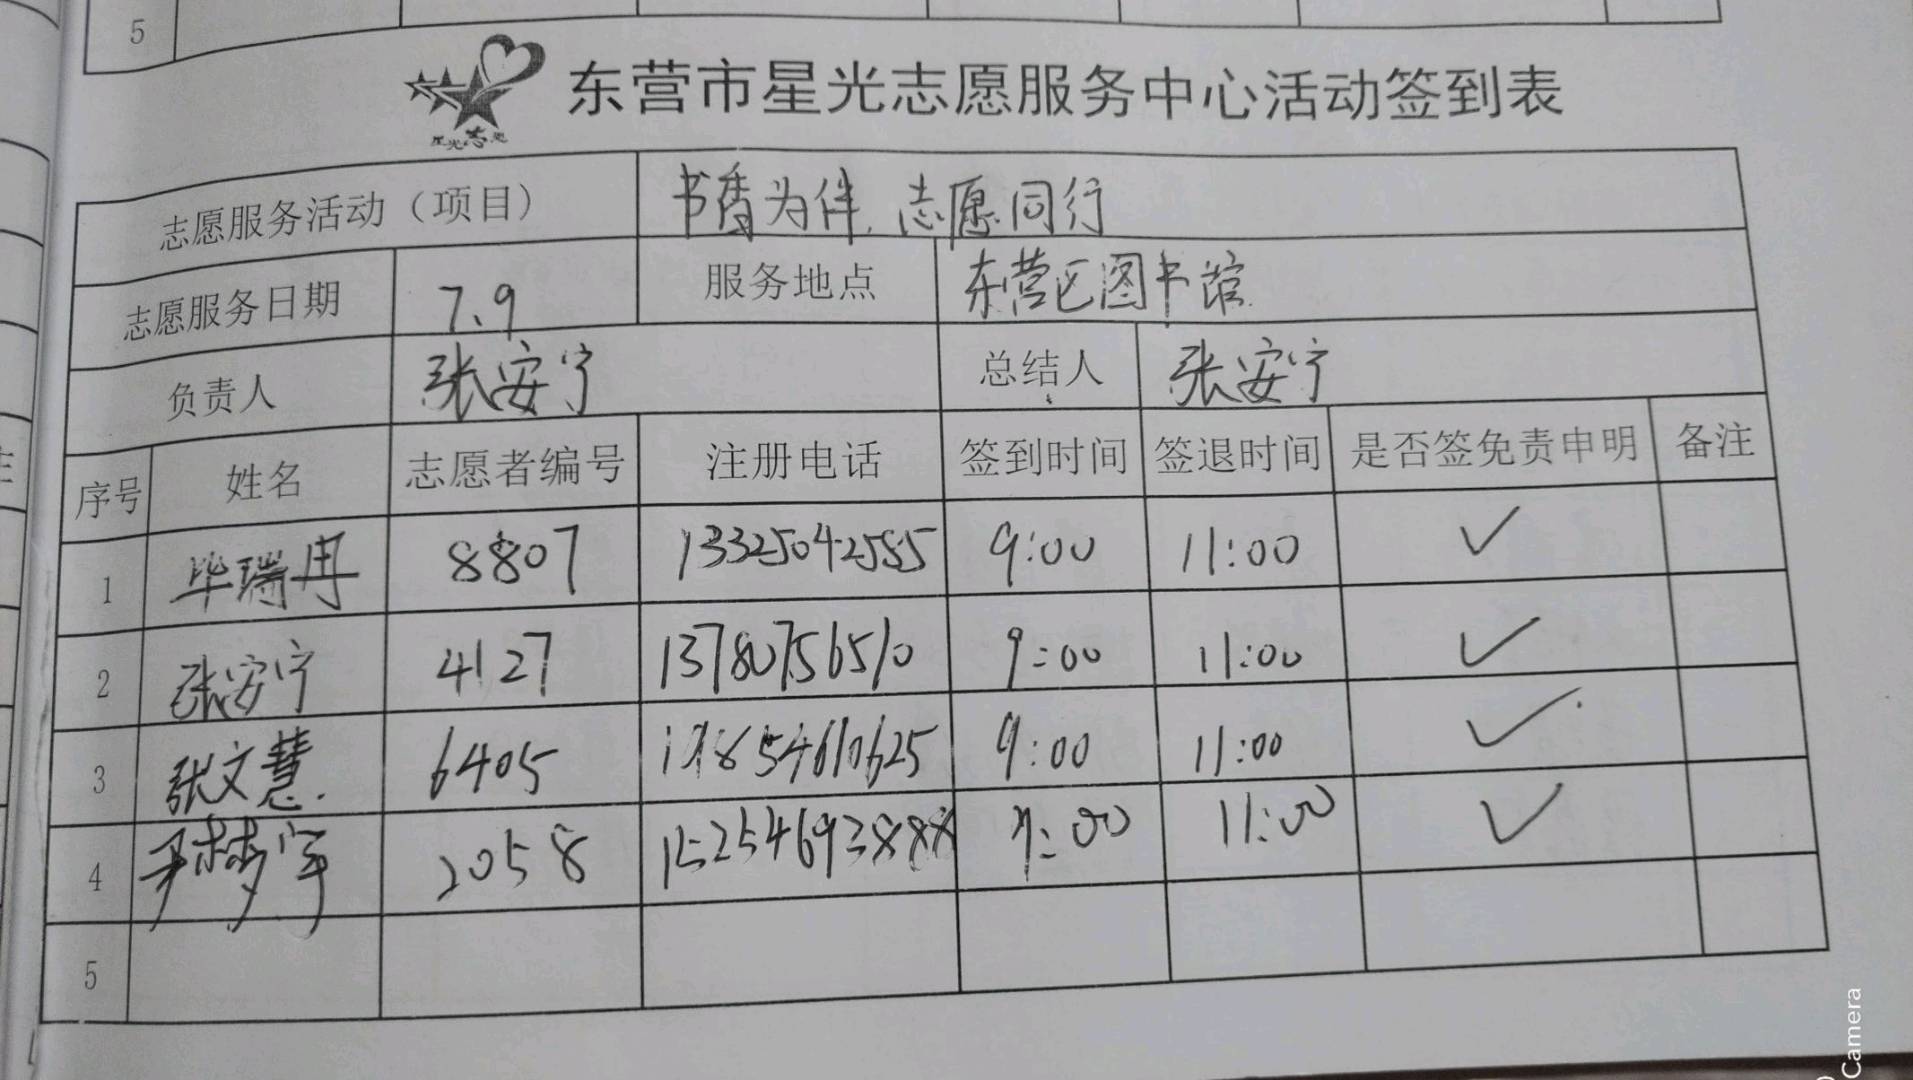 5
星光志愿
东营市星光志愿服务中心活动签到表
志愿服务活动（项目） 书香为伴, 志愿同行
志愿服务日期 7.9 服务地点 东营区图书馆
负责人 张安宁 总结人 张安宁
序号 姓名 志愿者编号 注册电话 签到时间 签退时间 是否签免责申明 备注
1 毕瑞冉 8807 13325042585 9:00 11:00 ✓
2 张安宁 4127 13780756510 9:00 11:00 ✓
3 张文慧 6405 9:00 11:00 ✓
4 尹梦宇 2058 15254693888 9:00 11:00 ✓
5
Camera